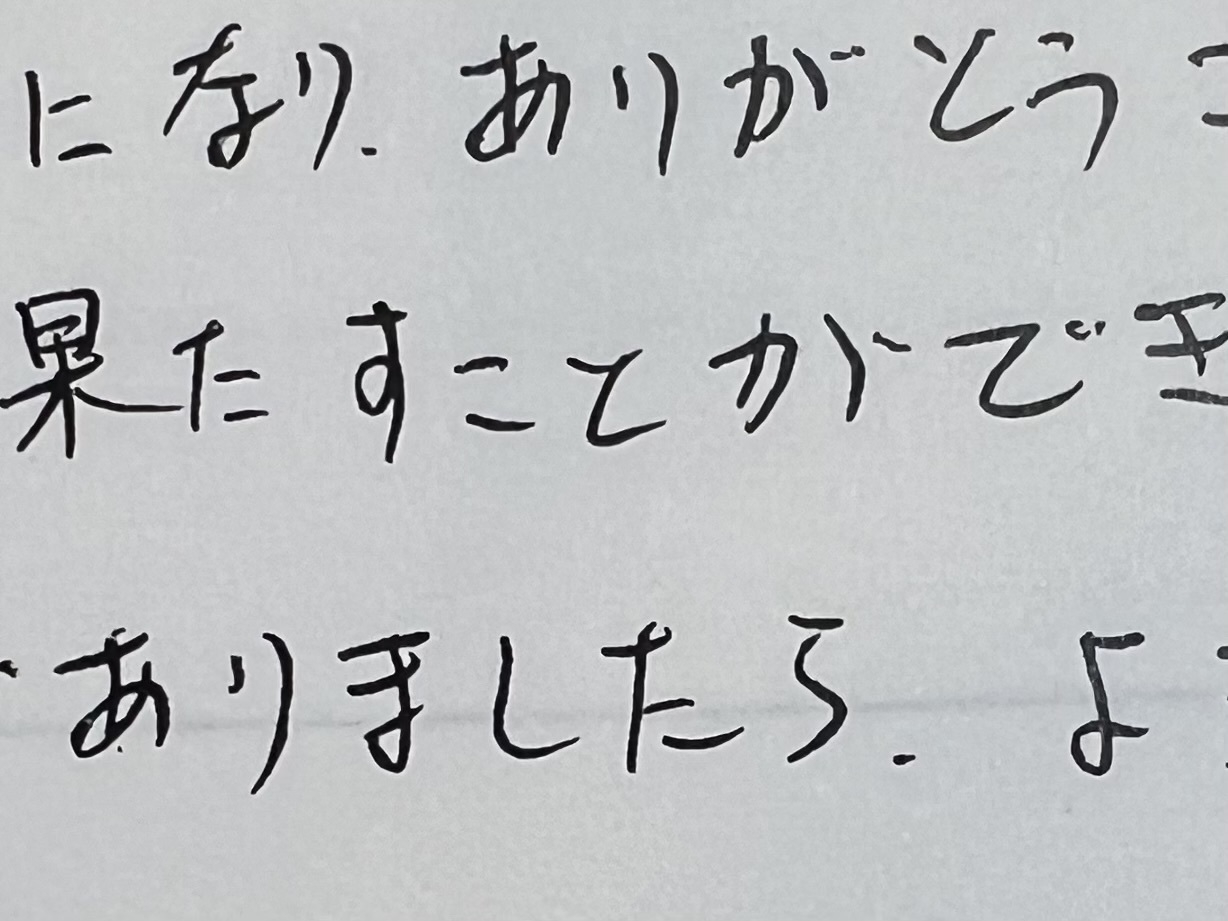 になり. ありがとう
果たすことができ
ありましたら. よ